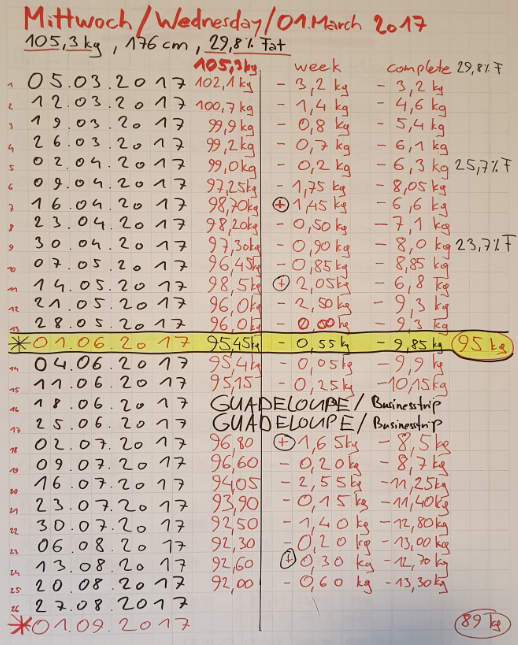 Mittwoch/Wednesday/01.March 2017
105,3 kg, 176 cm, 29,8% Fat
105,3kg week complete 29,8% F
1 05.03.2017 102,1 kg - 3,2 kg - 3,2 kg
2 12.03.2017 100,7 kg - 1,4 kg - 4,6 kg
3 19.03.2017 99,9 kg - 0,8 kg - 5,4 kg
4 26.03.2017 99,2 kg - 0,7 kg - 6,1 kg
5 02.04.2017 99,0 kg - 0,2 kg - 6,3 kg 25,7% F
6 09.04.2017 97,25 kg - 1,75 kg - 8,05 kg
7 16.04.2017 98,70 kg + 1,45 kg - 6,6 kg
8 23.04.2017 98,20 kg - 0,50 kg - 7,1 kg
9 30.04.2017 97,30 kg - 0,90 kg - 8,0 kg 23,7% F
10 07.05.2017 96,45 kg - 0,85 kg - 8,85 kg
11 14.05.2017 98,5 kg + 2,05 kg - 6,8 kg
12 21.05.2017 96,0 kg - 2,50 kg - 9,3 kg
13 28.05.2017 96,0 kg - 0,00 kg - 9,3 kg
* 01.06.2017 95,45 kg - 0,55 kg - 9,85 kg 95 kg
14 04.06.2017 95,4 kg - 0,05 kg - 9,9 kg
15 11.06.2017 95,15 - 0,25 kg - 10,15 kg
16 18.06.2017 GUADELOUPE/Businesstrip
17 25.06.2017 GUADELOUPE/Businesstrip
18 02.07.2017 96,80 + 1,65 kg - 8,5 kg
19 09.07.2017 96,60 - 0,20 kg - 8,7 kg
20 16.07.2017 94,05 - 2,55 kg - 11,25 kg
21 23.07.2017 93,90 - 0,15 kg - 11,40 kg
22 30.07.2017 92,50 - 1,40 kg - 12,80 kg
23 06.08.2017 92,30 - 0,20 kg - 13,00 kg
24 13.08.2017 92,60 + 0,30 kg - 12,70 kg
25 20.08.2017 92,00 - 0,60 kg - 13,30 kg
26 27.08.2017
* 01.09.2017 89 kg